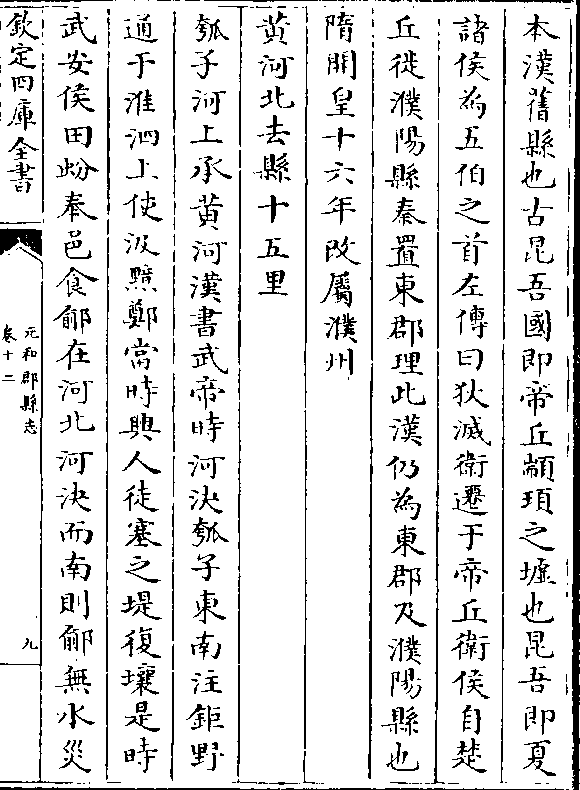 本漢舊縣也古昆吾國即帝丘顓頊之墟也昆吾即夏
諸侯為五伯之首左傳曰狄滅衛遷于帝丘衛侯自楚
丘徙濮陽縣秦置東郡理此漢仍為東郡及濮陽縣也
隋開皇十六年改屬濮州
黄河北去縣十五里
瓠子河上承黄河漢書武帝時河決瓠子東南注鉅野
通于淮泗上使汲黯鄭當時興人徒塞之堤復壞是時
武安侯田蚡奉邑食鄃在河北河決而南則鄃無水災
欽定四庫全書
元和郡縣志
卷十二
九